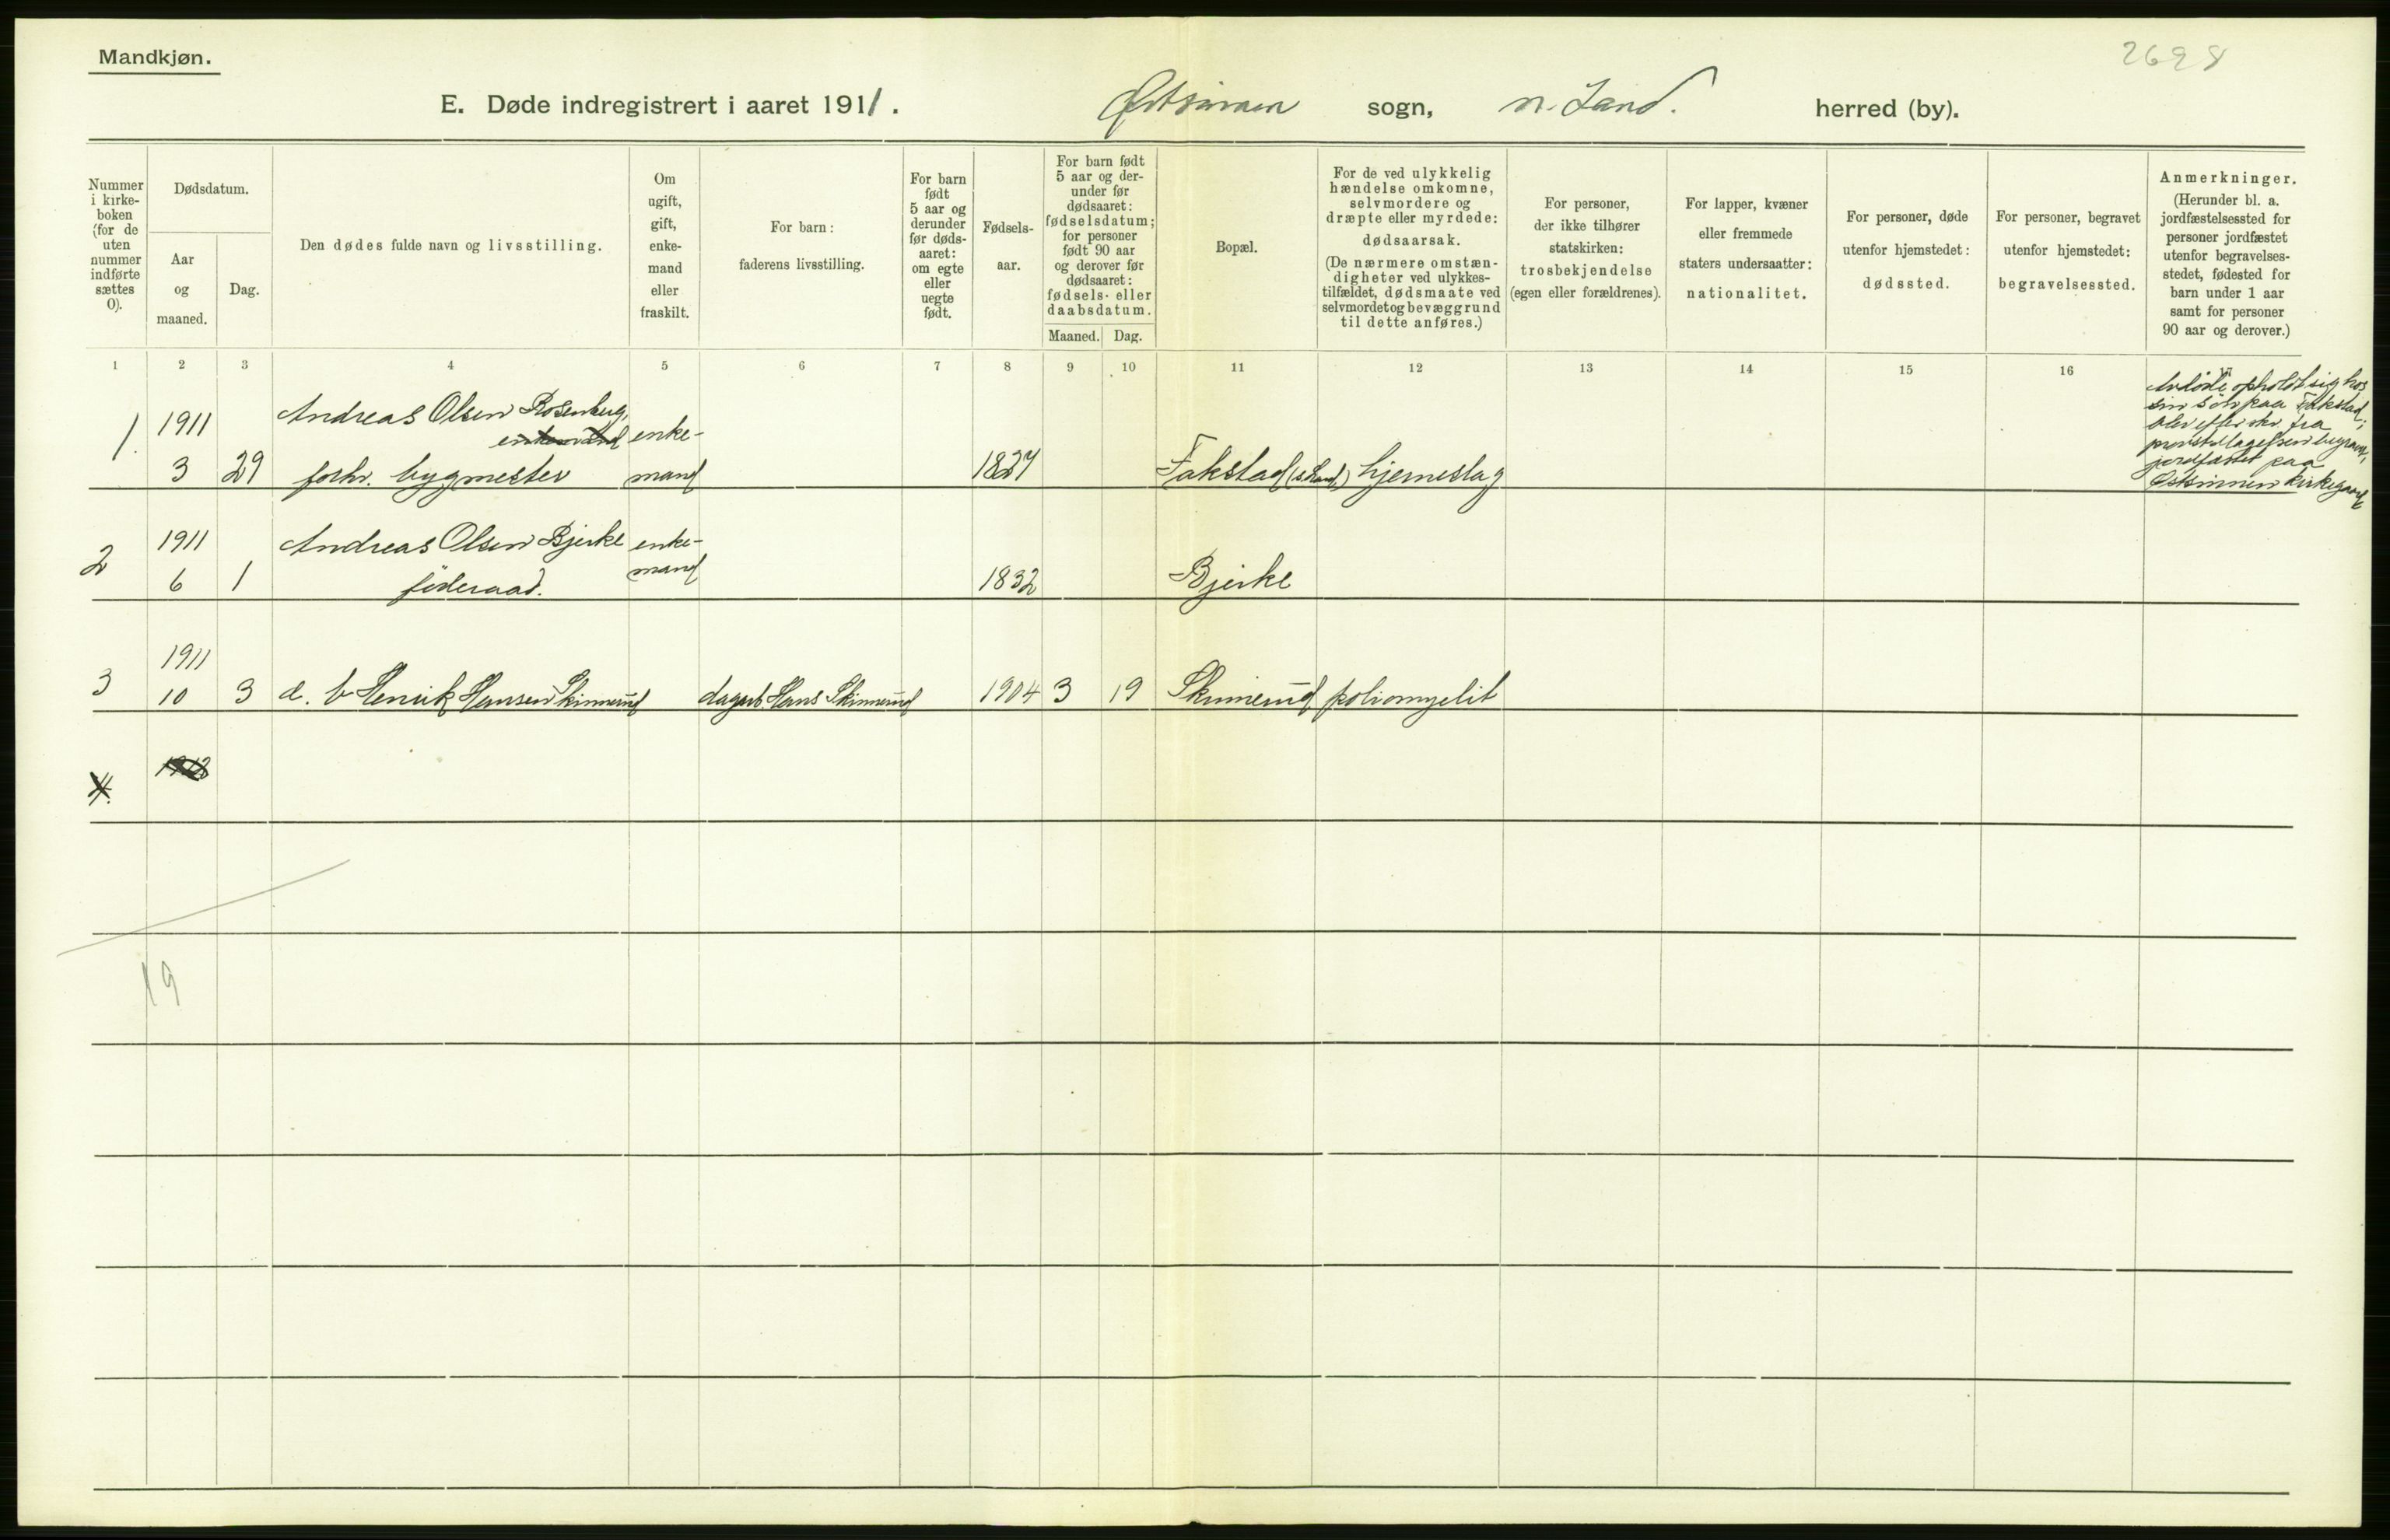 Mandkjøn.
2698
E. Døde indregistrert i aaret 1911. Østsinnen sogn, n. Land. herred (by).
Nummer i kirke-boken (for de uten nummer indførte sættes 0).
Dødsdatum.
Aar og maaned.
Dag.
Den dødes fulde navn og livsstilling.
Om ugift, gift, enke-mand eller fraskilt.
For barn: faderens livsstilling.
For barn født 5 aar og derunder før døds-aaret: om egte eller uegte født.
Fødsels-aar.
For barn født 5 aar og der-under før dødsaaret: fødselsdatum; for personer født 90 aar og derover før dødsaaret: fødsels- eller daabsdatum.
Maaned. Dag.
Bopæl.
For de ved ulykkelig hændelse omkomne, selvmordere og dræpte eller myrdede: dødsaarsak. (De nærmere omstæn-digheter ved ulykkes-tilfældet, dødsmaate ved selvmord et og bevæggrund til dette anføres.)
For personer, der ikke tilhører statskirken: trosbekjendelse (egen eller forældrenes).
For lapper, kvæner eller fremmede staters undersaatter: nationalitet.
For personer, døde utenfor hjemstedet: dødssted.
For personer, begravet utenfor hjemstedet: begravelsessted.
Anmerkninger. (Herunder bl. a. jordfæstelsessted for personer jordfæstet utenfor begravelses-stedet, fødested for barn under 1 aar samt for personer 90 aar og derover.)
1 2 3 4 5 6 7 8 9 10 11 12 13 14 15 16
1. 1911 3 29
Andreas Olsen Rosenberg,
enkemand
forhv. bygmester
enke-
mand
1827
Fakstad (s. Land) hjerneslag
Avdøde opholdt sig hos
sin søn paa Fakstad;
blev efter skr fra
jordfæstet paa
Østsinnen kirkegaard
2 1911 6 1
Andreas Olsen Bjerke
føderaad.
enke-
mand
1832
Bjerke
3 1911 10 3 d. b Henrik Hansen Skinnerud dagarb. Hans Skinnerud 1904 3 19 Skinnerud poliomyelit
4. 1912
19